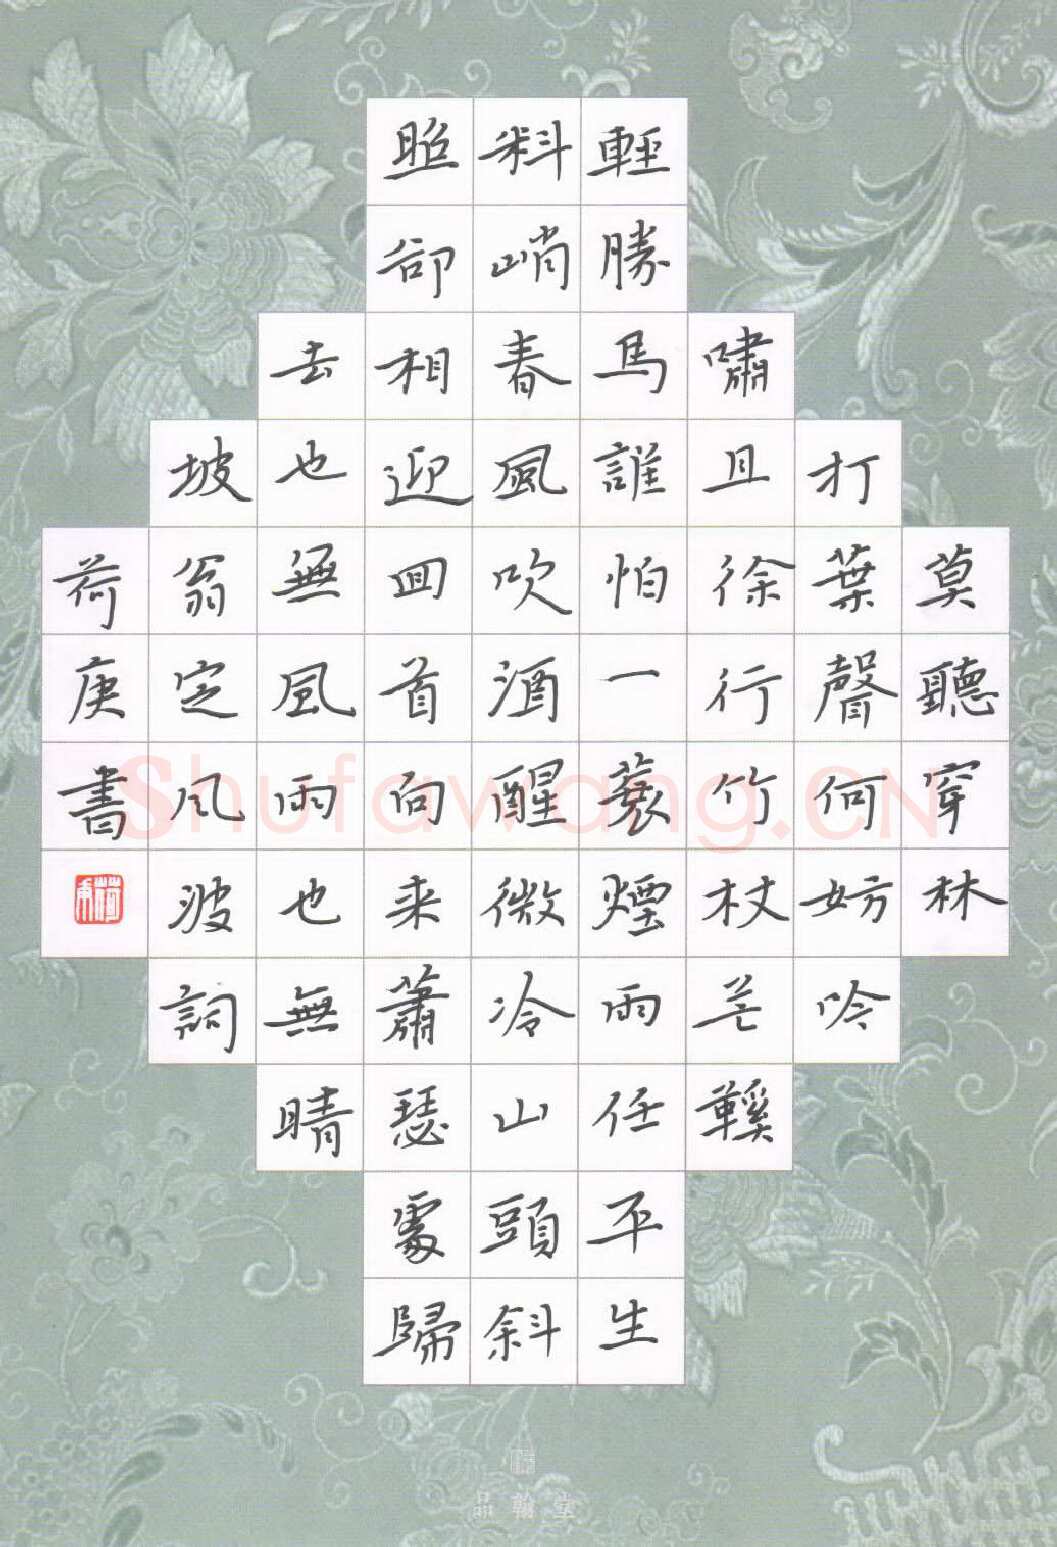 莫聽穿林
打葉聲何妨吟
嘯且徐行竹杖芒鞵
輕勝馬誰怕一蓑煙雨任平生
料峭春風吹酒醒微冷山頭斜
照卻相迎囬首向来蕭瑟處歸
去也無風雨也無晴
坡翁定風波詞
荷庚書
Shufawang.CN
品翰堂